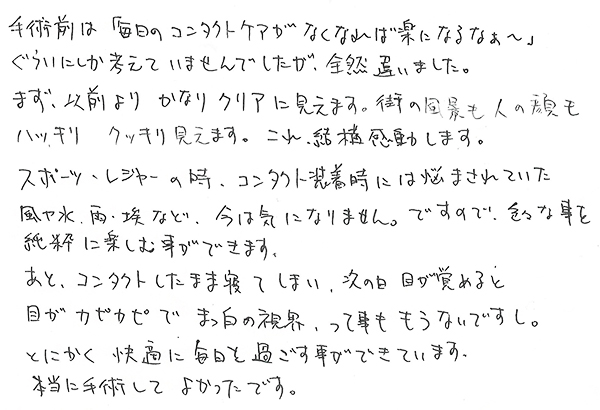 手術前は「毎日のコンタクトケアがなくなれば楽になるなぁ〜」
ぐらいにしか考えていませんでしたが、全然違いました。
まず、以前よりかなりクリアに見えます。街の風景も人の顔も
ハッキリ クッキリ見えます。これ、結構感動します。
スポーツ・レジャーの時、コンタクト装着時には悩まされていた
風や水、雨・埃など、今は気になりません。ですので、色々な事を
純粋に楽しむ事ができます。
あと、コンタクトしたまま寝てしまい、次の日目が覚めると
目がカピカピでまっ白の視界、って事ももうないですし。
とにかく快適に毎日を過ごす事ができています。
本当に手術してよかったです。